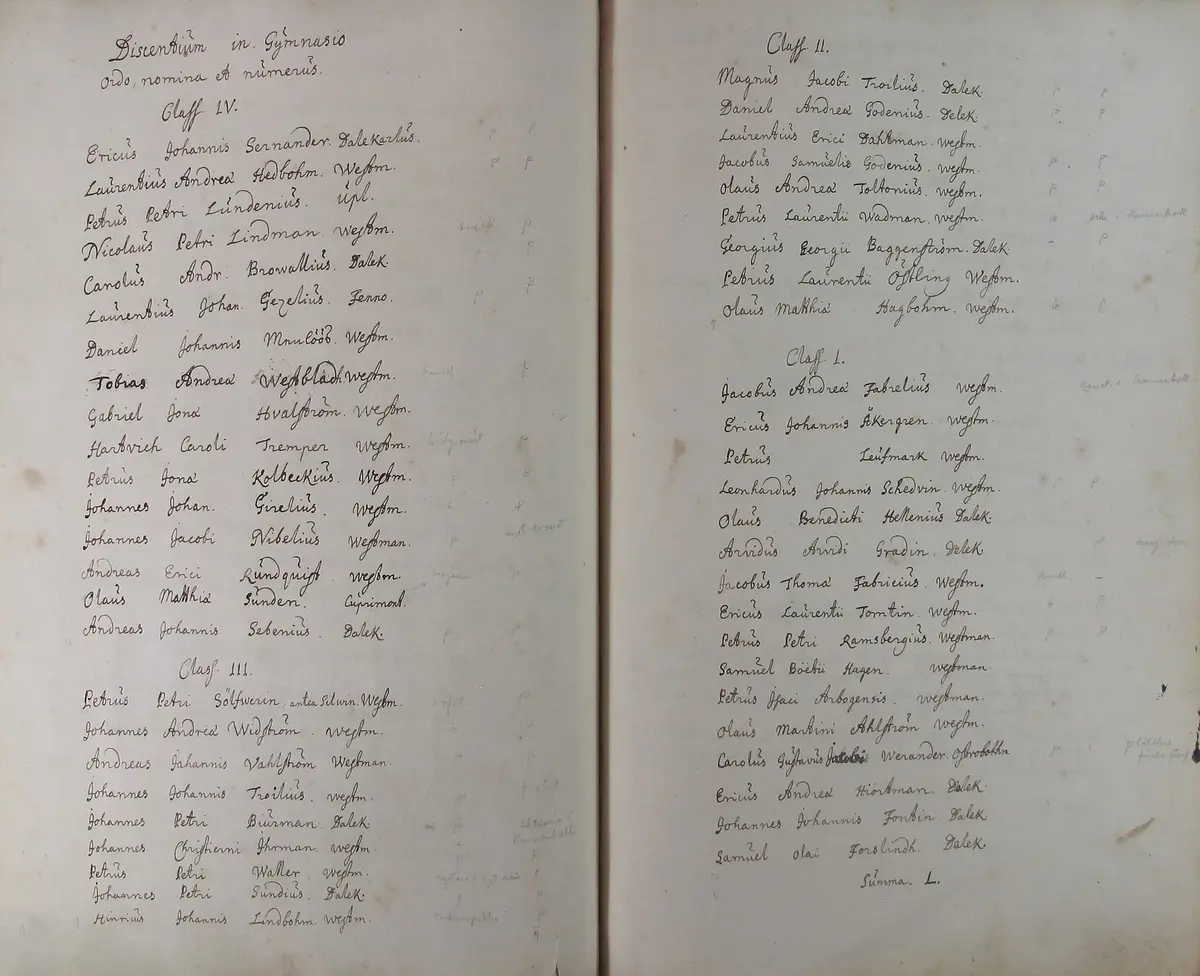 Discentium in Gymnasio
Ordo, nomina et numerus.
Class IV.
Ericus Johannis Sernander. Dalekarlus.
Laurentius Andreæ Hedbohm. Westm.
Petrus Petri Lundenius. Upl.
Nicolaus Petri Lindman. Westm.
Carolus Andr. Browallius. Dalek.
Laurentius Johan. Gezelius. Fenno.
Daniel Johannis Westm.
Tobias Andreæ Westbladh. Westm.
Gabriel Jonæ Hvalström. Westm.
Hartvich Caroli Tremper Westm.
Petrus Jonæ Kolbeckius. Westm.
Johannes Johan. Girelius. Westm.
Johannes Jacobi Nibelius Westman.
Andreas Erici Rundquist. westm.
Olaus Matthiæ Sunden. Cuprimont.
Andreas Johannis Sebenius. Dalek.
Class. III.
Petrus Petri Sölfwerin, antea Silwin. Westm.
Johannes Andreæ Widström. westm.
Andreas Johannis Vahlström Westman.
Johannes Johannis Troilius. westm.
Johannes Petri Biurman. Dalek.
Johannes Christierni Ihrman. westm.
Petrus Petri Waller. Westm.
Johannes Petri Sundius. Dalek.
Hinricus Johannis Lindbohm. Westm.
Class II.
Magnus Jacobi Troilius. Dalek.
Daniel Andreæ Godenius. Delek.
Laurentius Erici Dahlman. westm.
Jacobus Samuelis Godenius. westm.
Olaus Andreæ Toltonius. westm.
Petrus Laurentii Wadman. westm.
Georgius Georgii Baggenström. Dalek.
Petrus Laurentii Östling Westm.
Olaus Matthiæ Hagbohm. westm.
Class. I.
Jacobus Andreæ Fabrelius westm.
Ericus Johannis Åkergren. westm.
Petrus Leufmark westm.
Leonhardus Johannis Schedvin. westm.
Olaus Benedicti Hellenius Dalek.
Arvidus Arvidi Gradin. Delek
Jacobus Thomæ Fabricius. Westm.
Ericus Laurentii Tomtin. westm.
Petrus Petri Ramsbergius. Westman.
Samuel Boëtii Hagen westman.
Petrus Isaci Arbogensis. westman.
Olaus Martini Ahlström westm.
Carolus Gustavus Jacobi Werander. Ostrobothn
Ericus Andreæ Hiortman. Dalek.
Johannes Johannis Fontin Dalek.
Samuel Olai Forslindh. Dalek.
Summa. L.